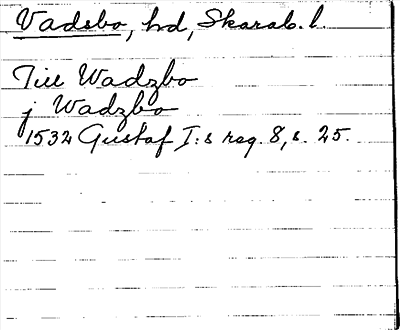 Vadsbo, hd, Skarab. l.
Till Wadzbo
j Wadzbo
1532 Gustaf I:s reg. 8, s. 25.